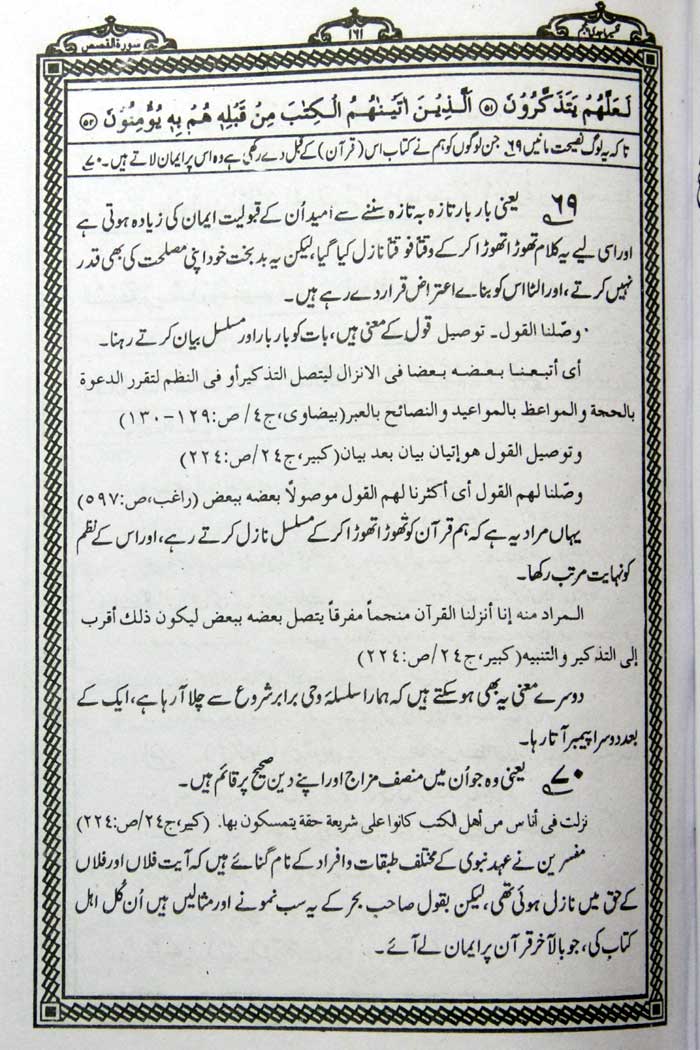 سورة القصص
۱۶۱
لَعَلَّهُمْ يَتَذَكَّرُوْنَ ﴿۵۱﴾ اَلَّذِيْنَ اٰتَيْنٰهُمُ الْكِتٰبَ مِنْ قَبْلِهٖ هُمْ بِهٖ يُؤْمِنُوْنَ ﴿۵۲﴾
تاکہ یہ لوگ نصیحت مانیں ۶۹ جن لوگوں کو ہم نے کتاب اس (قرآن) کے قبل دے رکھی ہے وہ اس پر ایمان لاتے ہیں۔ ۷۰
۶۹ یعنی بار بار تازہ بہ تازہ سننے سے امید اُن کے قبولیت ایمان کی زیادہ ہوتی ہے
اور اسی لیے یہ کلام تھوڑا تھوڑا کر کے وقتاً فوقتاً نازل کیا گیا، لیکن یہ بدبخت خود اپنی مصلحت کی بھی قدر
نہیں کرتے، اور الٹا اس کو بناے اعتراض قرار دے رہے ہیں۔
وصّلنا القول۔ توصیل قول کے معنی ہیں، بات کو بار بار اور مسلسل بیان کرتے رہنا۔
أی أتبعنا بعضه بعضا فی الانزال لیتصل التذکیر أو فی النظم لتقرر الدعوة
بالحجة والمواعظ بالمواعید و النصائح بالعبر (بیضاوی، ج٤/ ص:١٢٩-١٣٠)
وتوصیل القول هو إتیان بیان بعد بیان (کبیر، ج٢٤/ص:٢٢٤)
وصّلنا لهم القول أی أکثرنا لهم القول موصولاً بعضه ببعض (راغب، ص:٥٩٧)
یہاں مراد یہ ہے کہ ہم قرآن کو تھوڑا تھوڑا کر کے مسلسل نازل کرتے رہے، اور اس کے نظم
کو نہایت مرتب رکھا۔
المراد منه إنا أنزلنا القرآن منجماً مفرقاً یتصل بعضه ببعض لیکون ذلك أقرب
إلی التذکیر والتنبیه (کبیر، ج٢٤/ص:٢٢٤)
دوسرے معنی یہ بھی ہو سکتے ہیں کہ ہمارا سلسلۂ وحی برابر شروع سے چلا آ رہا ہے، ایک کے
بعد دوسرا پیمبر آتا رہا۔
۷۰ یعنی وہ جو اُن میں منصف مزاج اور اپنے دین صحیح پر قائم ہیں۔
نزلت فی أناس من أهل الکتب کانوا علی شریعة حقة یتمسکون بها۔ (کبیر، ج٢٤/ص:٢٢٤)
مفسرین نے عہد نبوی کے مختلف طبقات و افراد کے نام گنائے ہیں کہ آیت فلاں اور فلاں
کے حق میں نازل ہوئی تھی، لیکن بقول صاحب بحر کے یہ سب نمونے اور مثالیں ہیں اُن کُل اہل
کتاب کی، جو بالآخر قرآن پر ایمان لے آئے۔